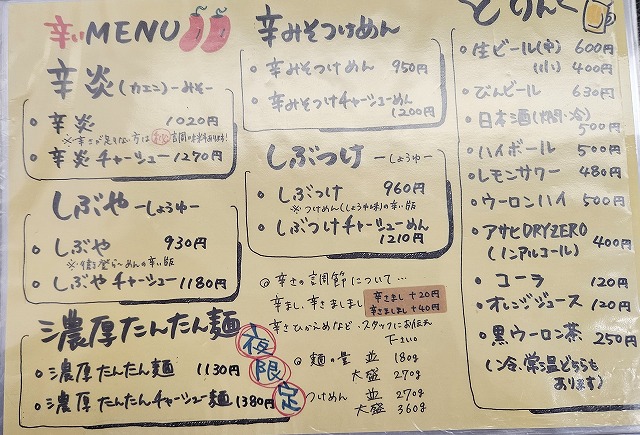 辛いMENU
辛炎(カエン)ーみそー
・辛炎 1020円
・辛炎チャーシュー 1270円
しぶやーしょうゆー
・しぶや 930円
・しぶやチャーシュー 1180円
濃厚たんたん麺
夜限定
・濃厚たんたん麺 1130円
・濃厚たんたんチャーシュー麺 1380円
辛みそつけめん
・辛みそつけめん 950円
・辛みそつけチャーシューめん
1200円
しぶつけーしょうゆー
・しぶつけ 960円
※つけめん(しょうゆ味)の辛い版
・しぶつけチャーシューめん
1210円
◎辛さの調節について…
辛まし、辛さましまし
辛さまし+20円
辛さましまし+40円
辛さひかえめなど、スタッフにお伝え
下さい
◎麺の量 並 180g
大盛 270g
つけめん 並 270g
大盛 360g
どりんく
・生ビール(中) 600円
(小) 400円
・びんビール 630円
・日本酒(燗・冷)
500円
・ハイボール 500円
・レモンサワー 480円
・ウーロンハイ 500円
・アサヒDRYZERO
(ノンアルコール) 400円
・コーラ 120円
・オレンジジュース 120円
・黒ウーロン茶 250円
(冷、常温どちらも
あります)